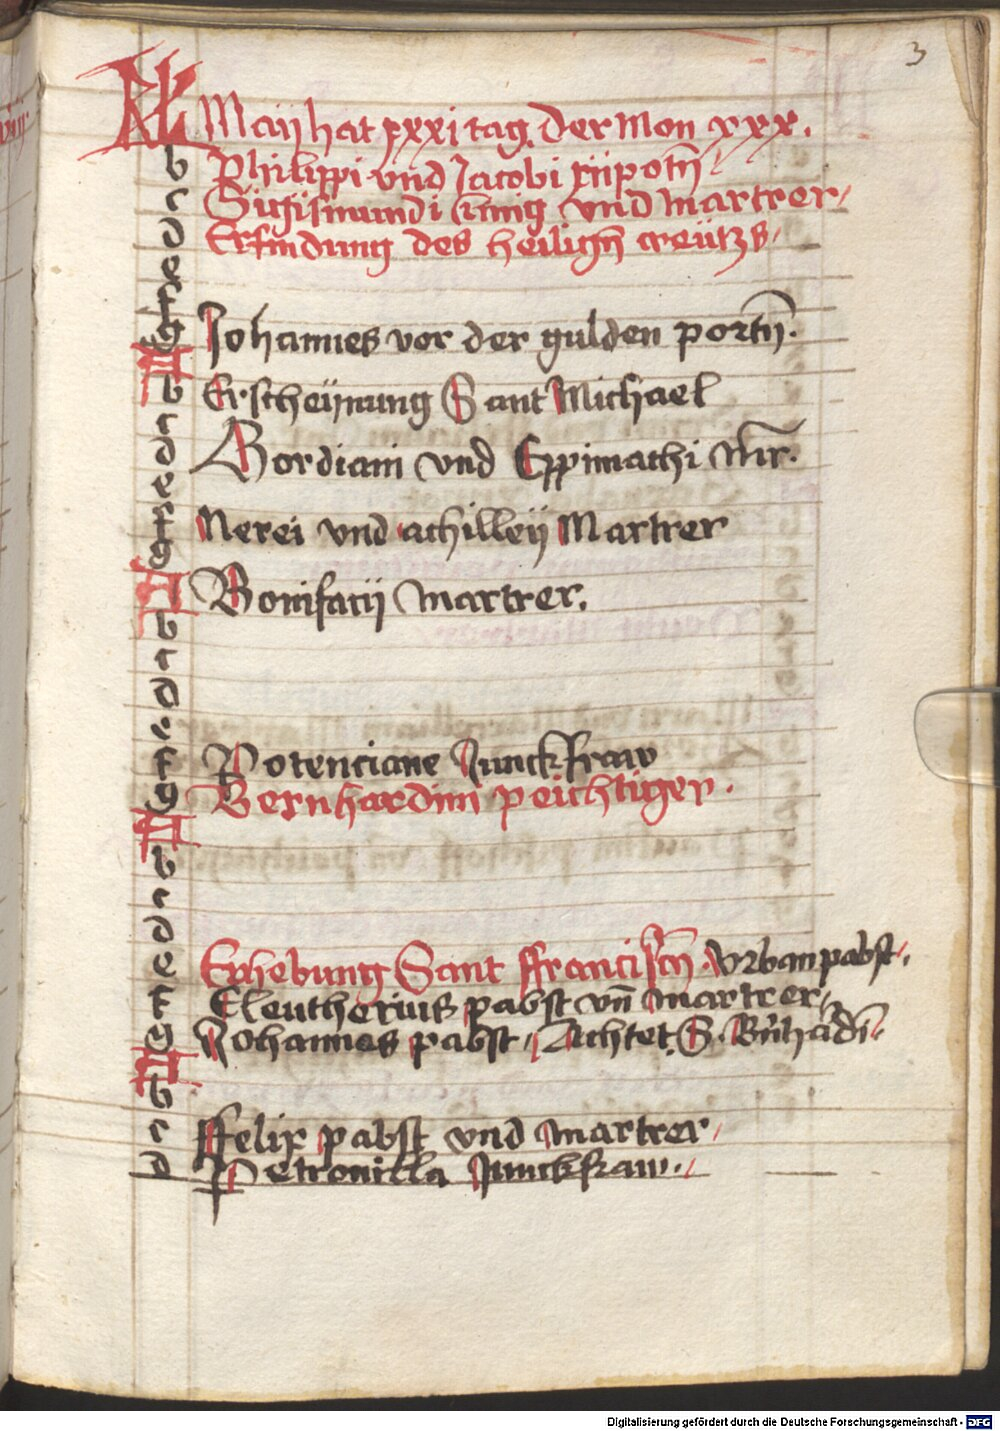 3
KL Maÿ hat xxxi tag. Der Mon xxx.
b Philippi vnd Jacobi xiipotñ
c Sigismundi künig vnd martrer
d Erfindung des heiligñ creützs
e
f
g Johannes vor der gulden portñ.
A
b Erscheÿnung Sant Michael
c
d Gordiani vnd Eppimachi mr̄.
e
f Nerei vnd achilleÿ Martrer
g
A Bonifacÿ martrer.
b
c
d
e
f Potenciane Junckfraw
g Bernhardini peichtiger.
A
b
c
d
e Erhebung Sant ffranciscñ. Vrban pabst.
f Eleutherius pabst vn̄ martrer
g Johannes pabst. Achtet. S. Bn̄hādī.
A
b
c ffelix pabst vnd martrer
d Petronilla Junckfraw.
Digitalisierung gefördert durch die Deutsche Forschungsgemeinschaft - DFG